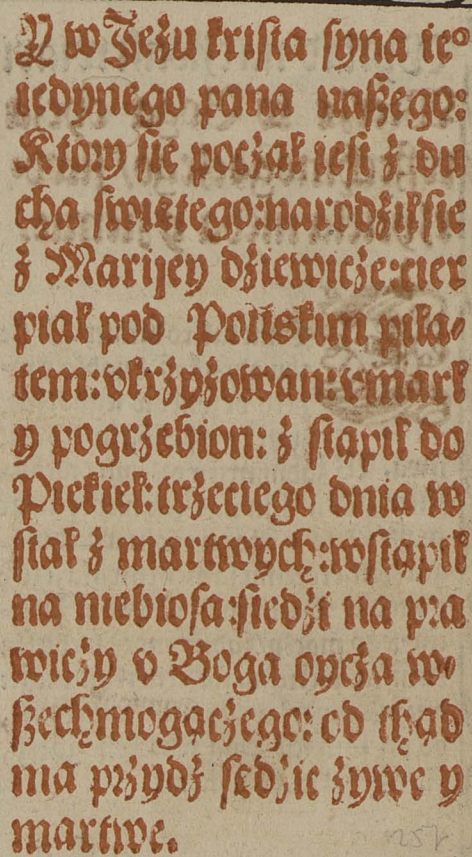 Y w Jeżu kriſta ſyna ie°
iedynego pana naßego:
Ktory ſie poczał ieſt ż du
cha ſwiętego:narodżiłſie
ż Marijey dżiewicże:cier
piał pod Pontskim piła⸗
tem:vkrżyżowan:vmarł
y pogrżebion: ż ſtąpił do
Piekieł:trżeciego dnia w
ſtał ż martwych:wſtąpił
na niebioſa:ſiedżi na pꝛa
wicży v Boga oycża w⸗
ßechmogącżego: od thąd
ma pꝛżydż ſędżic żywe y
martwe.
257